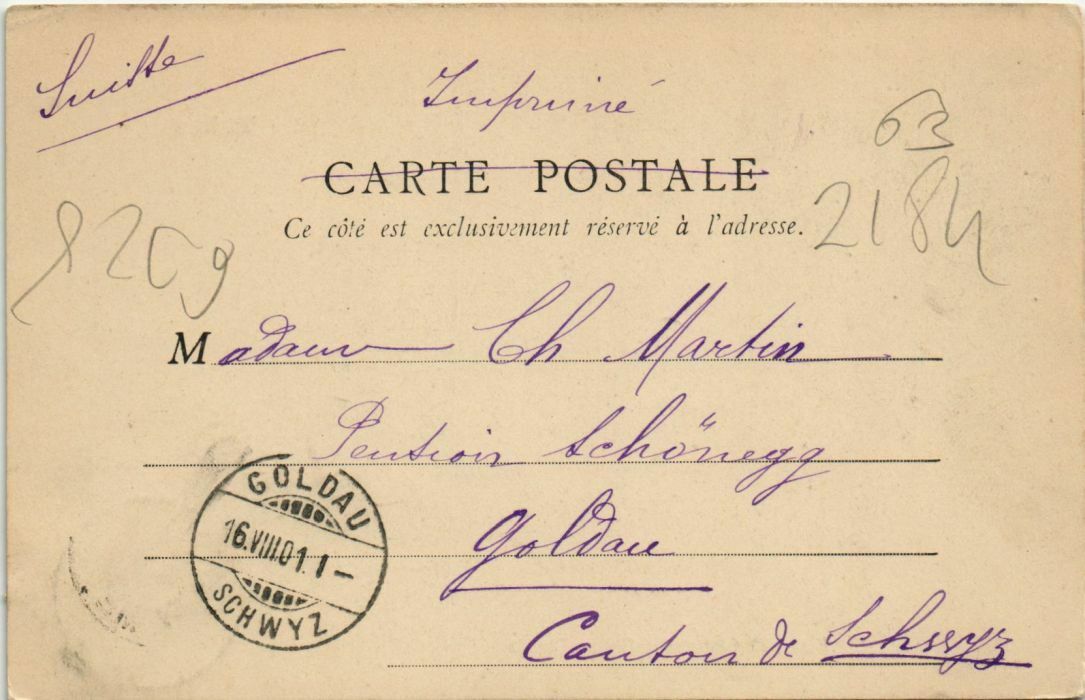 Suisse
Imprimé
63
CARTE POSTALE
2184
Ce côté est exclusivement réservé à l'adresse.
Madame Ch Martin
Pension Schönegg
GOLDAU
16.VIII.01.1–
SCHWYZ
Goldau
Canton de Schwyz